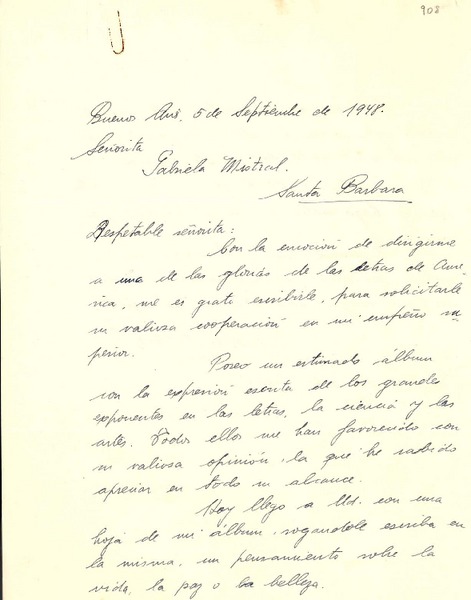 908
Buenos Aires. 5 de Septiembre de 1948.
Señorita
Gabriela Mistral.
Santa Barbara
Respetable señorita:
Con la emoción de dirigirme
a una de las glorias de las letras de Amé-
rica, me es grato escribirle, para solicitarle
su valiosa cooperación en mi empeño su-
perior.
Poseo un estimado álbum
con la expresión escrita de los grandes
exponentes en las letras, la ciencia y las
artes. Todos ellos me han favorecido con
su valiosa opinión, la que he sabido
apreciar en todo su alcance.
Hoy llego a Ud. con una
hoja de mi álbum, rogandole escriba en
la misma, un pensamiento sobre la
vida, la paz o la belleza.